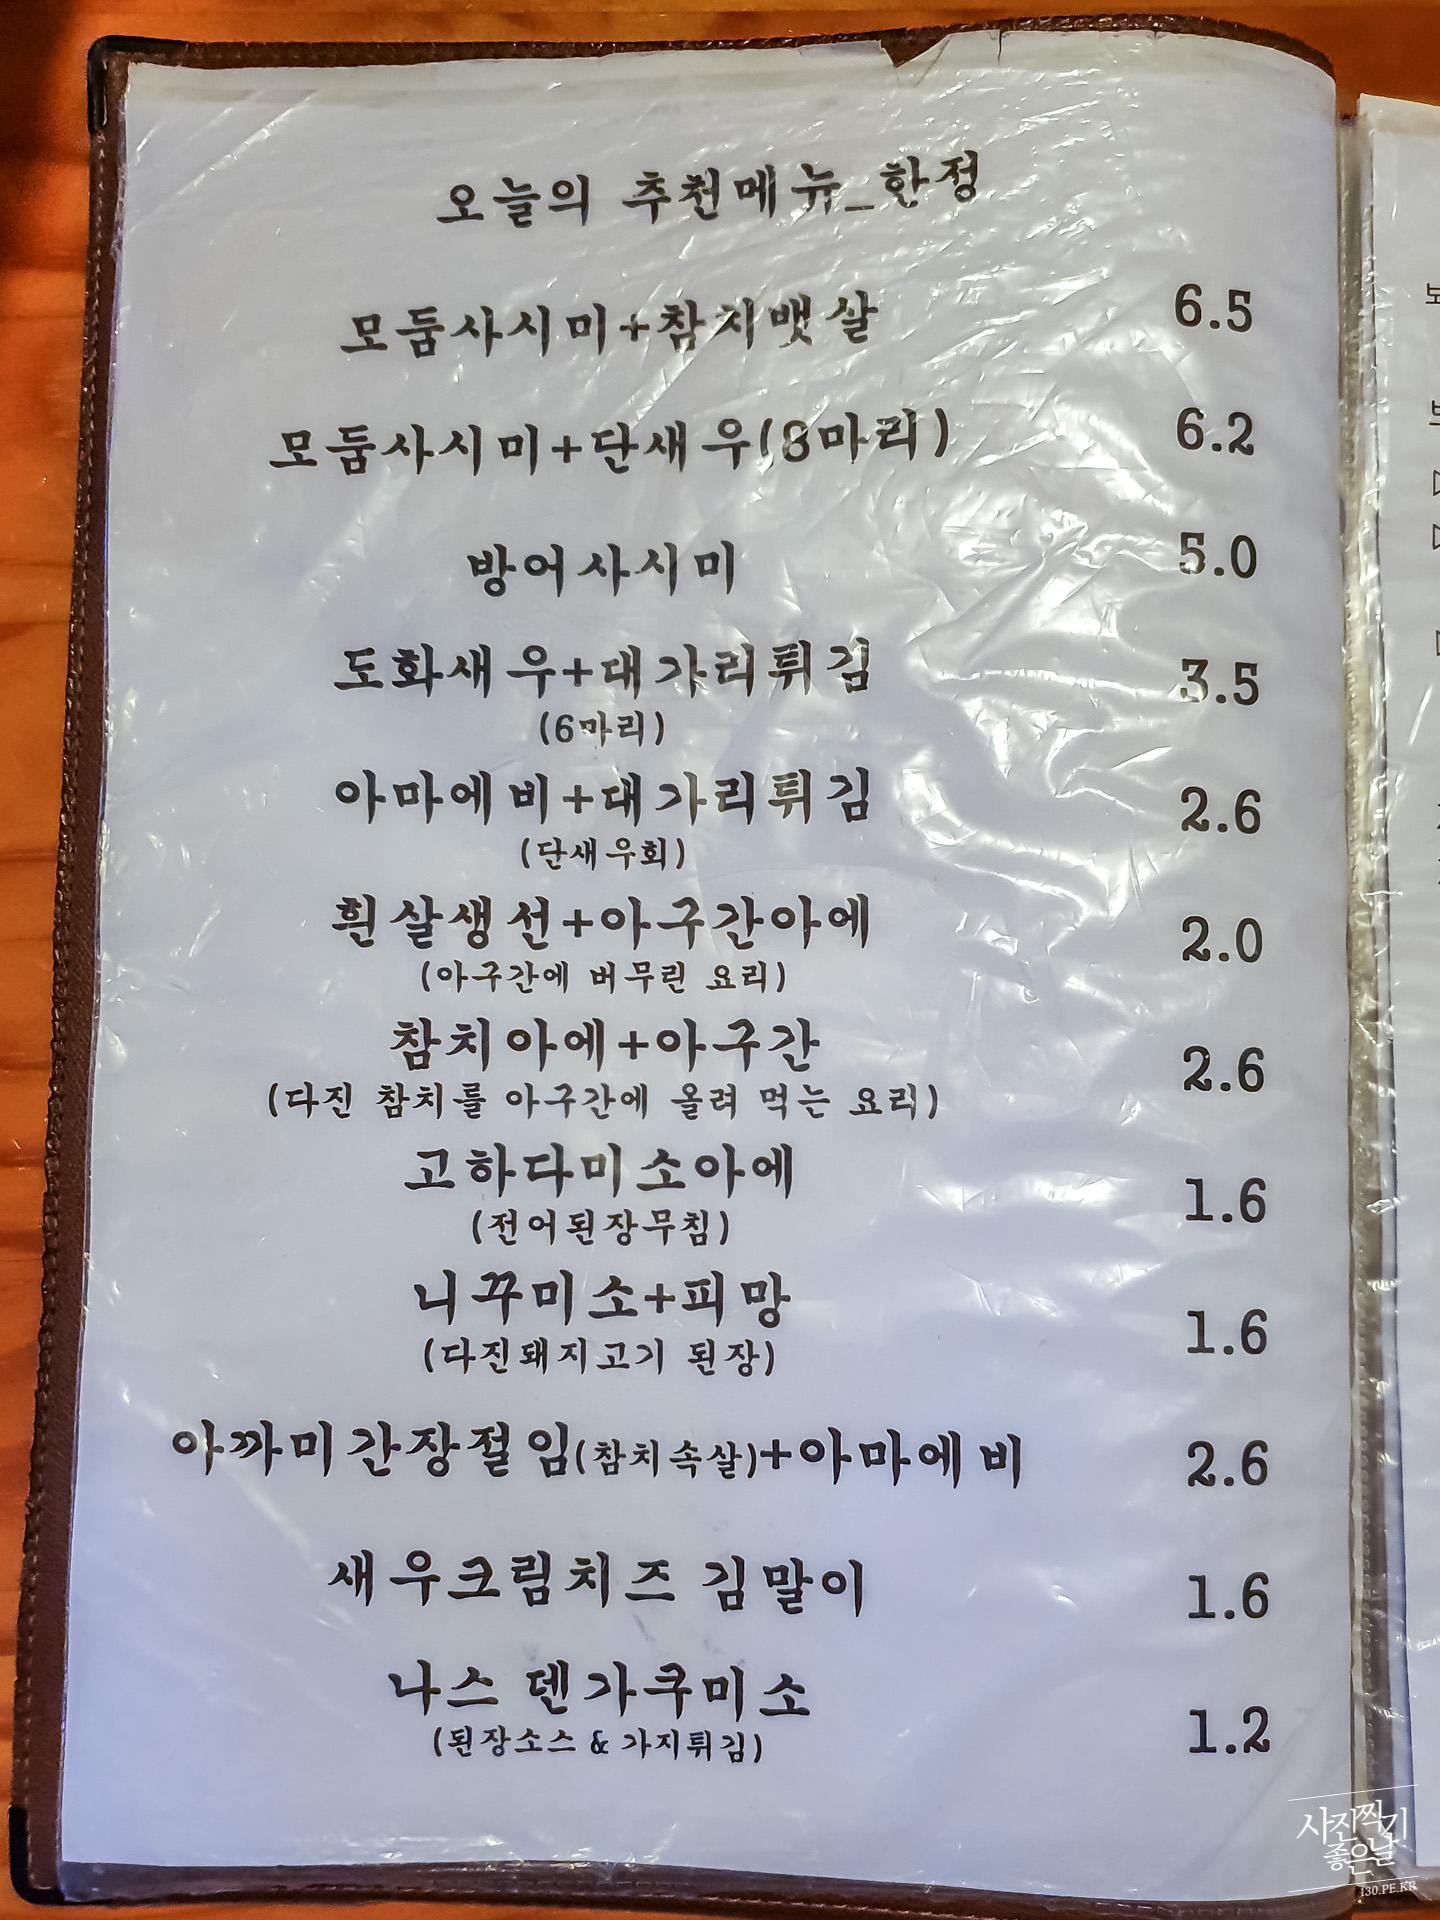 오늘의 추천메뉴_한정
모둠사시미+참치뱃살 6.5
모둠사시미+단새우(8마리) 6.2
방어사시미 5.0
도화새우+대가리튀김 3.5
(6마리)
아마에비+대가리튀김 2.6
(단새우회)
흰살생선+아구간아에 2.0
(아구간에 버무린 요리)
참치아에+아구간 2.6
(다진 참치를 아구간에 올려 먹는 요리)
고하다미소아에 1.6
(전어된장무침)
니꾸미소+피망 1.6
(다진돼지고기 된장)
아까미간장절임(참치속살)+아마에비 2.6
새우크림치즈 김말이 1.6
나스 덴가쿠미소 1.2
(된장소스 & 가지튀김)
사진찍기
좋은날
130.PE.KR